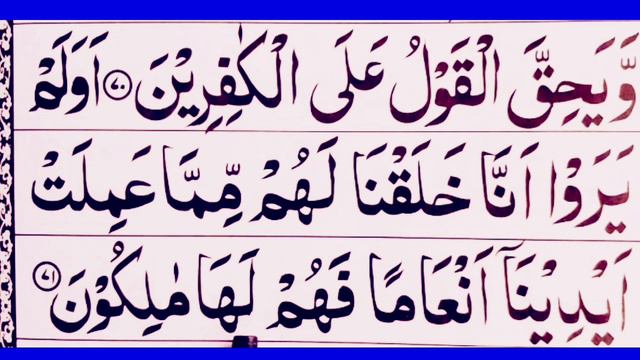 وَّيَحِقَّ الْقَوْلُ عَلَى الْكٰفِرِيْنَ ﴿۷۰﴾ اَوَلَمْ
يَرَوْا اَنَّا خَلَقْنَا لَهُمْ مِّمَّا عَمِلَتْ
اَيْدِيْنَاۤ اَنْعَامًا فَهُمْ لَهَا مٰلِكُوْنَ ﴿۷۱﴾